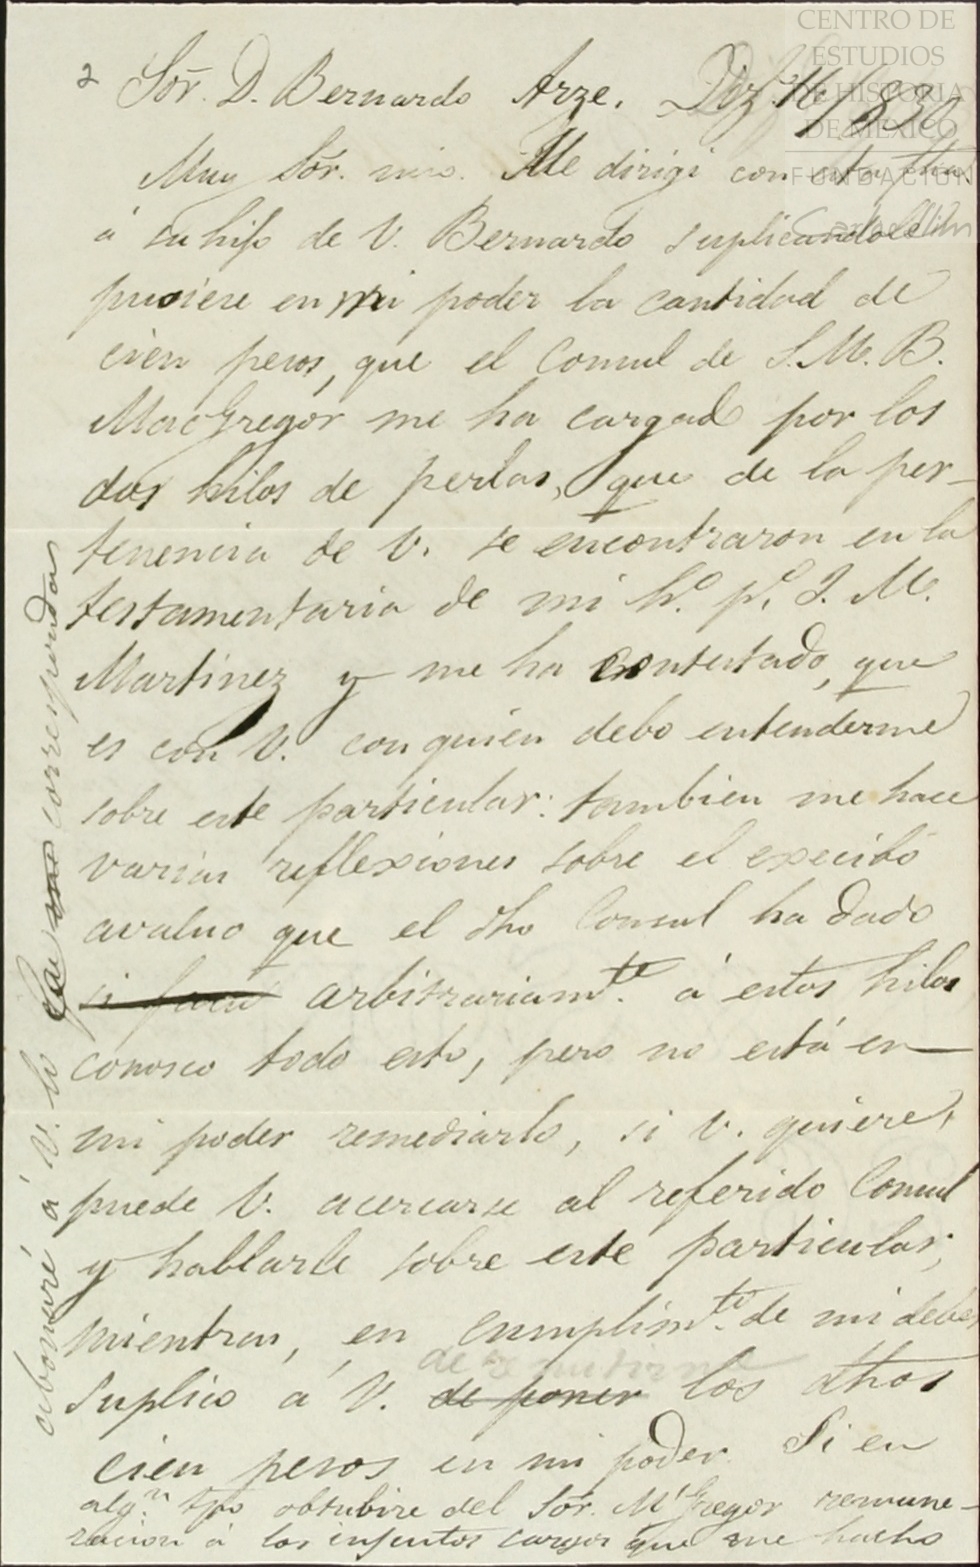 CENTRO DE
ESTUDIOS
DE HISTORIA
DE MÉXICO
FUNDACIÓN
2 Sōr. D. Bernardo Arze. Dizᵉ 11/830
Muy Sōr. mio. Me dirigi con esta fha.
á su hijo de V. Bernardo suplicandole
pusiere en mi poder la cantidad de
cien pesos, que el Consul de S. M. B.
MacGregor me ha cargado por los
dos hilos de perlas, que de la per-
tenencia de V. se encontraron en la
testamentaria de mi hº. pº. J. M.
Martinez y me ha contestado, que
es con V. con quien debo entenderme
sobre este particular: tambien me hace
varias reflexiones sobre el execibo
avaluo que el dho Consul ha dado
arbitrariamᵗᵉ. á estos hilos
conosco todo esto, pero no está en
mi poder remediarlo, si V. quiere,
puede V. acercarse al referido Consul
y hablarle sobre este particular;
mientras, en cumplimᵗᵒ. de mi deber
de remitirme
suplico á V. de poner los dhos
cien pesos en mi poder. Si en
algⁿ. tpo obtubire del Sōr. McGregor remune-
racion á los injustos cargos que me hacho
abonaré á V. lo que correspondan